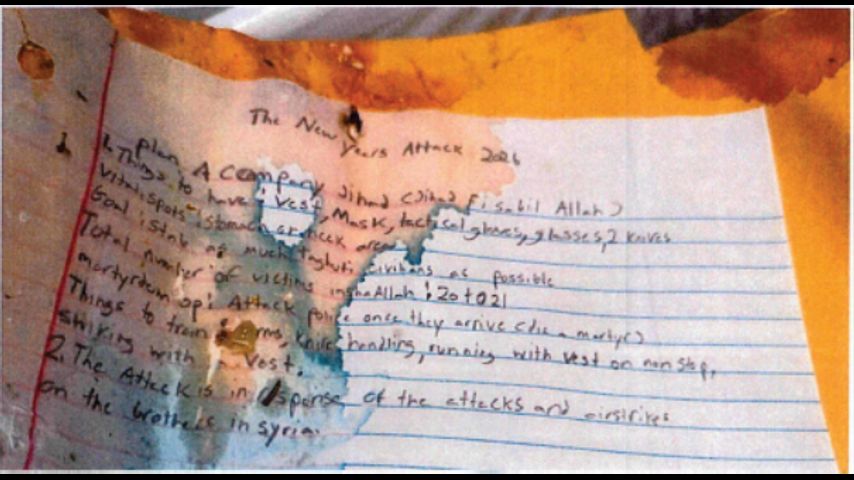 The New Years Attack 2026
plan A company Jihad (Jihad fi sabil Allah)
1. Things to have: Vest, Mask, tactical gloves, glasses, 2 knives
Vital spots: stomach or neck area
Goal: stab as much civilians as possible
Total number of victims inshaAllah: 20 to 21
martyrdom op: Attack police once they arrive (die a martyr)
Things to train: knife handling, running with vest on non stop,
striking with vest.
2. The Attack is in response of the attacks and airstrikes
on the brothers in syria.